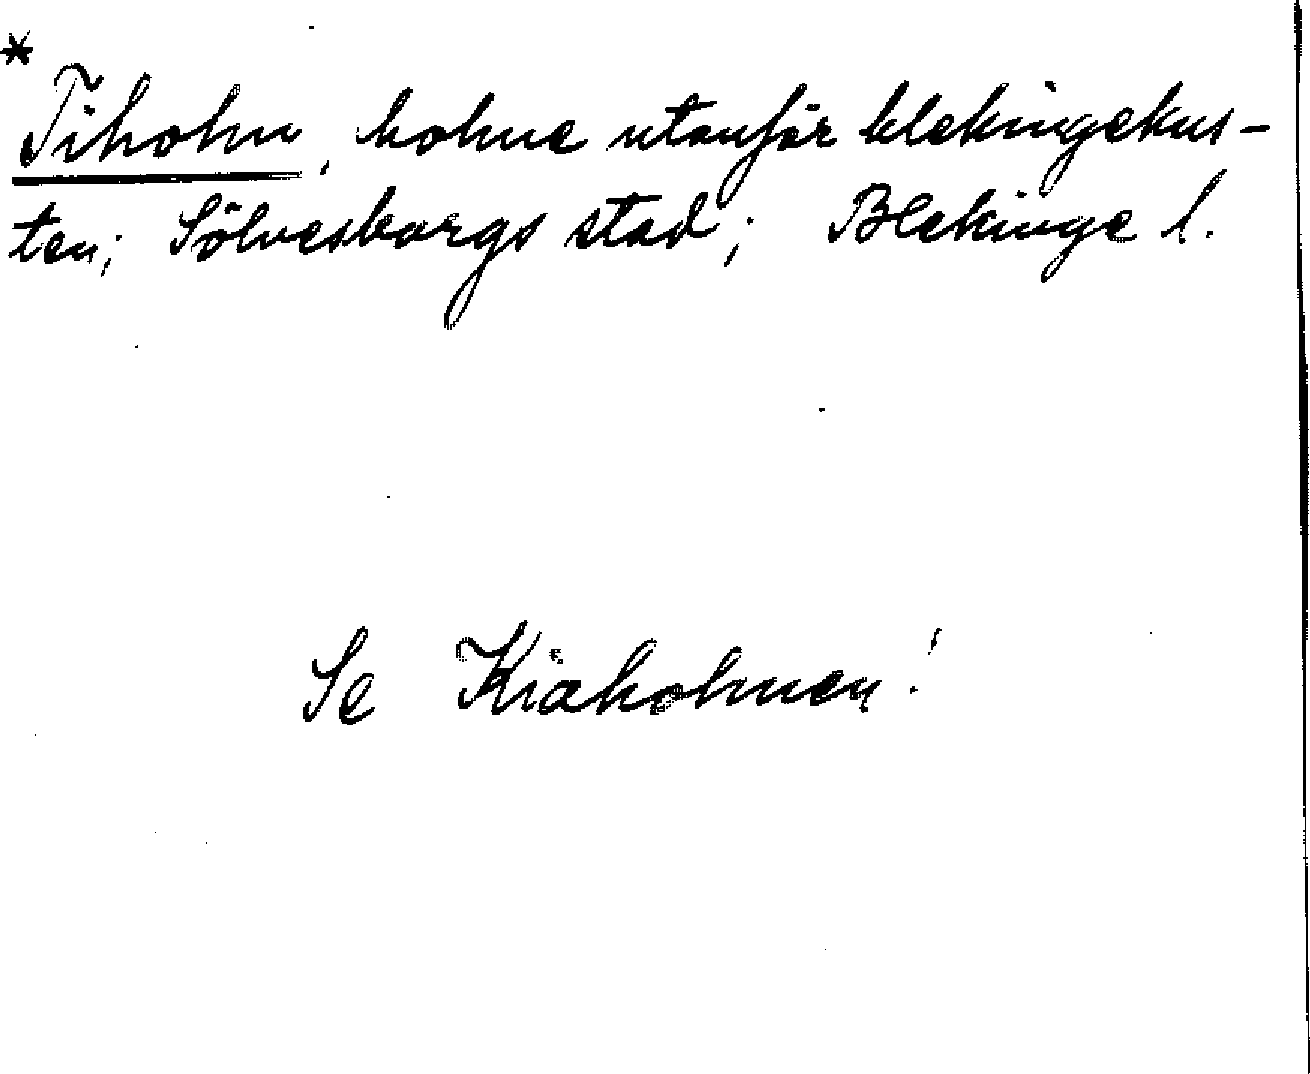 *
Tiholm, holme utanför blekingekus-
ten; Sölvesborgs stad; Blekinge l.
Se Kråkholmen!